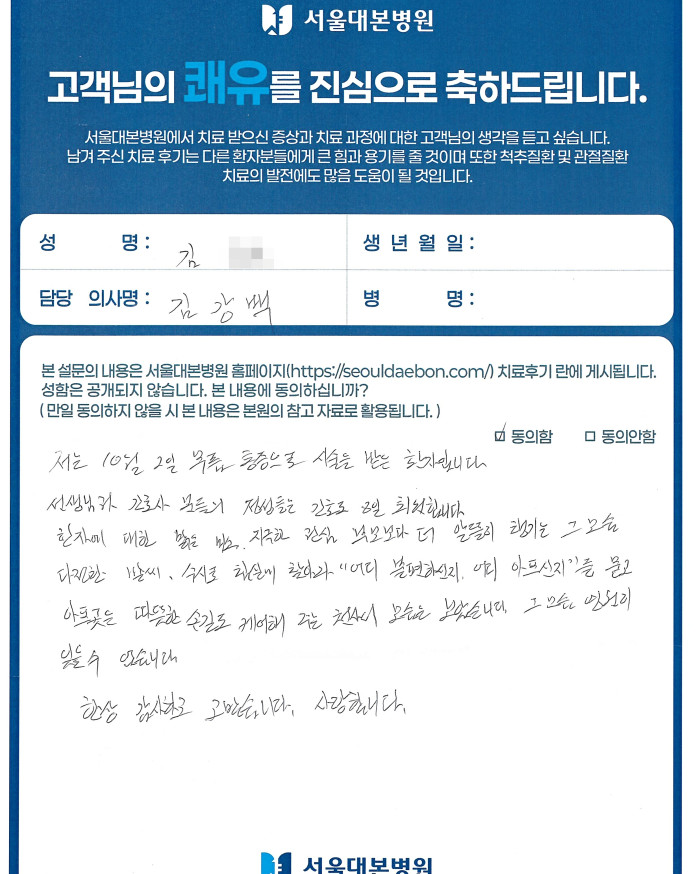 서울대본병원
고객님의 쾌유를 진심으로 축하드립니다.
서울대본병원에서 치료 받으신 증상과 치료 과정에 대한 고객님의 생각을 듣고 싶습니다.
남겨 주신 치료 후기는 다른 환자분들에게 큰 힘과 용기를 줄 것이며 또한 척추질환 및 관절질환
치료의 발전에도 많음 도움이 될 것입니다.
성 명 : 김
생 년 월 일 :
담당 의사명 : 김 강 백
병 명 :
본 설문의 내용은 서울대본병원 홈페이지(https://seouldaebon.com/) 치료후기 란에 게시됩니다.
성함은 공개되지 않습니다. 본 내용에 동의하십니까?
( 만일 동의하지 않을 시 본 내용은 본원의 참고 자료로 활용됩니다. )
☑ 동의함 □ 동의안함
저는 10월 2일 무릎 통증으로 시술을 받은 환자입니다
선생님과 간호사 분들의 정성들은 간호로 2일 퇴원합니다
환자에 대한 밝은 미소, 지극한 관심 부모보다 더 알뜰히 챙기는 그 모습
다정한 말씨, 수시로 병실에 찾아와 "어디 불편하신지, 어디 아프신지"를 묻고
아픈곳은 따뜻한 손길로 케어해 주는 천사의 모습을 보았습니다. 그 모습 영원히
잊을 수 없습니다
항상 감사하고 고맙습니다. 사랑합니다.
서울대본병원